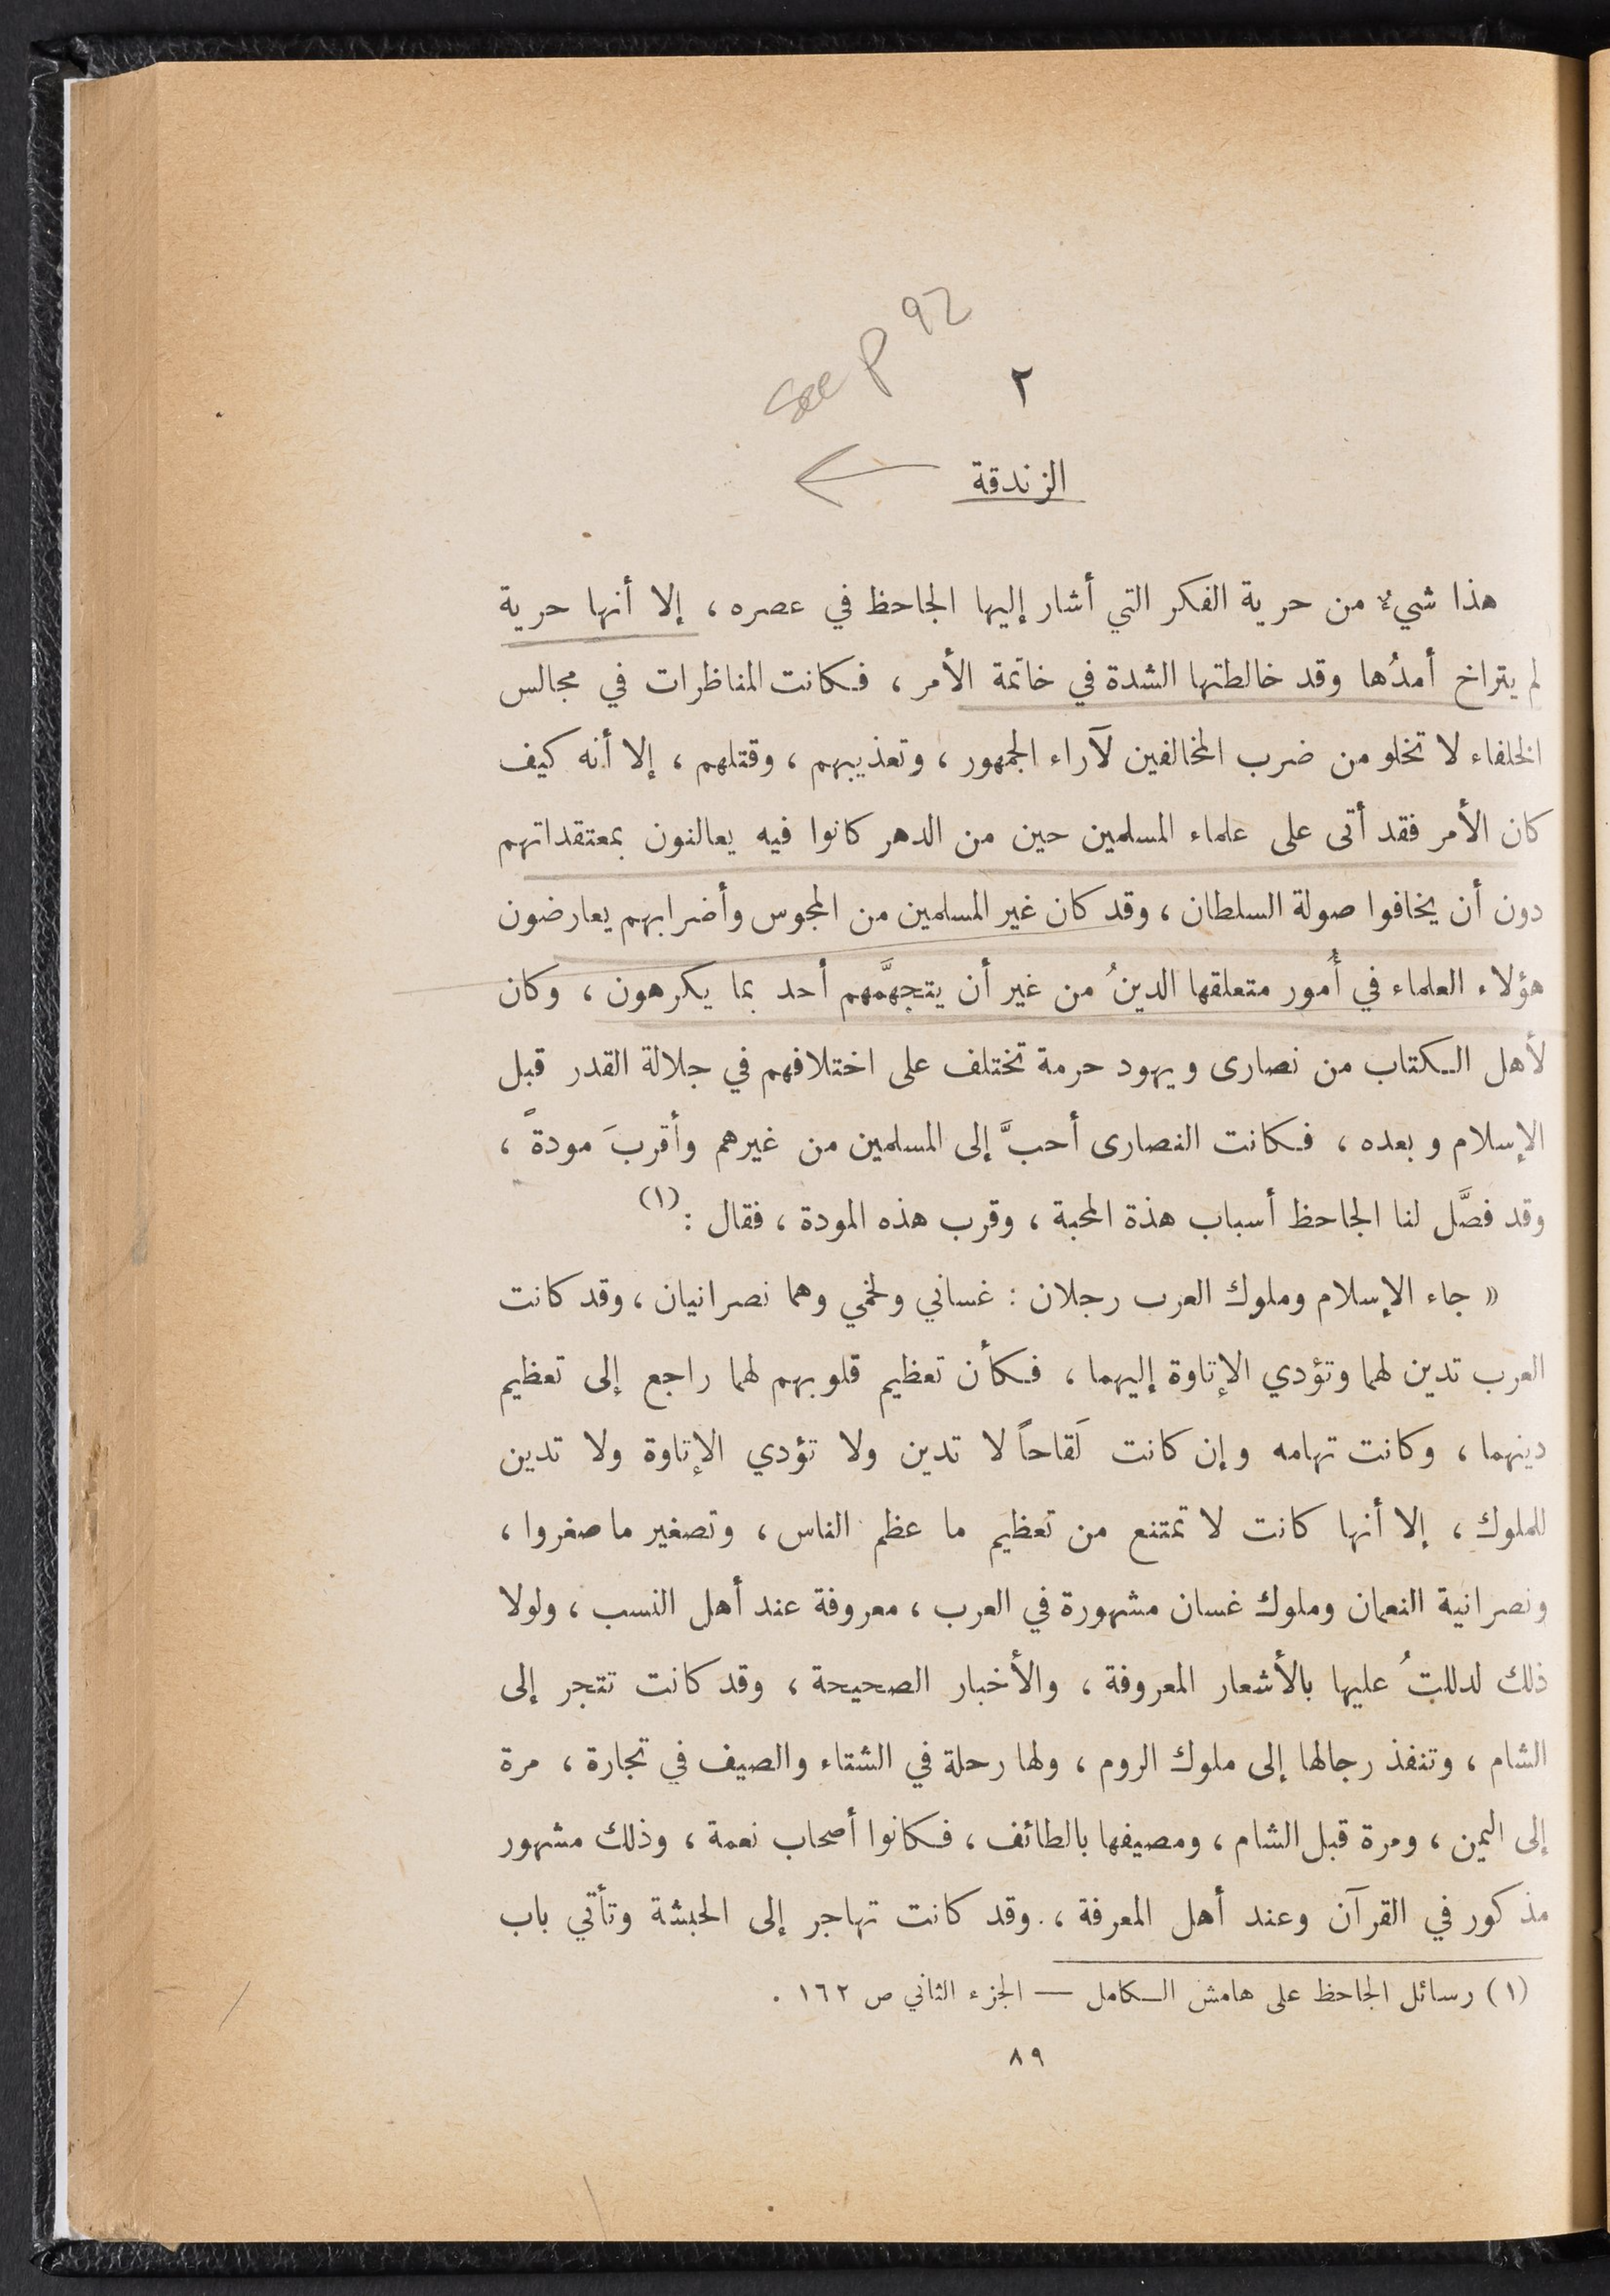 see p 92
٢
الزندقة
هذا شيء من حرية الفكر التي أشار إليها الجاحظ في عصره ، إلا أنها حرية
لم يتراخ أمدُها وقد خالطتها الشدة في خاتمة الأمر ، فكانت المناظرات في مجالس
الخلفاء لا تخلو من ضرب المخالفين لآراء الجمهور ، وتعذيبهم ، وقتلهم ، إلا أنه كيف
كان الأمر فقد أتى على علماء المسلمين حين من الدهر كانوا فيه يعالنون بمعتقداتهم
دون أن يخافوا صولة السلطان ، وقد كان غير المسلمين من المجوس وأضرابهم يعارضون
هؤلاء العلماء في أُمور متعلقها الدينُ من غير أن يتجهَّمهم أحد بما يكرهون ، وكان
لأهل الكتاب من نصارى ويهود حرمة تختلف على اختلافهم في جلالة القدر قبل
الإسلام وبعده ، فكانت النصارى أحبَّ إلى المسلمين من غيرهم وأقربَ مودة ،
وقد فصَّل لنا الجاحظ أسباب هذة المحبة ، وقرب هذه المودة ، فقال : (١)
« جاء الإسلام وملوك العرب رجلان : غساني ولخمي وهما نصرانيان ، وقد كانت
العرب تدين لهما وتؤدي الإتاوة إليهما ، فكأن تعظيم قلوبهم لهما راجع إلى تعظيم
دينهما ، وكانت تهامه وإن كانت لَقاحاً لا تدين ولا تؤدي الإتاوة ولا تدين
للملوك ، إلا أنها كانت لا تمتنع من تعظيم ما عظم الناس ، وتصغير ما صغروا ،
ونصرانية النعمان وملوك غسان مشهورة في العرب ، معروفة عند أهل النسب ، ولولا
ذلك لدللتُ عليها بالأشعار المعروفة ، والأخبار الصحيحة ، وقد كانت تتجر إلى
الشام ، وتنفذ رجالها إلى ملوك الروم ، ولها رحلة في الشتاء والصيف في تجارة ، مرة
إلى اليمن ، ومرة قبل الشام ، ومصيفها بالطائف ، فكانوا أصحاب نعمة ، وذلك مشهور
مذكور في القرآن وعند أهل المعرفة ، وقد كانت تهاجر إلى الحبشة وتأتي باب
(١) رسائل الجاحظ على هامش الكامل — الجزء الثاني ص ١٦٢ .
٨٩